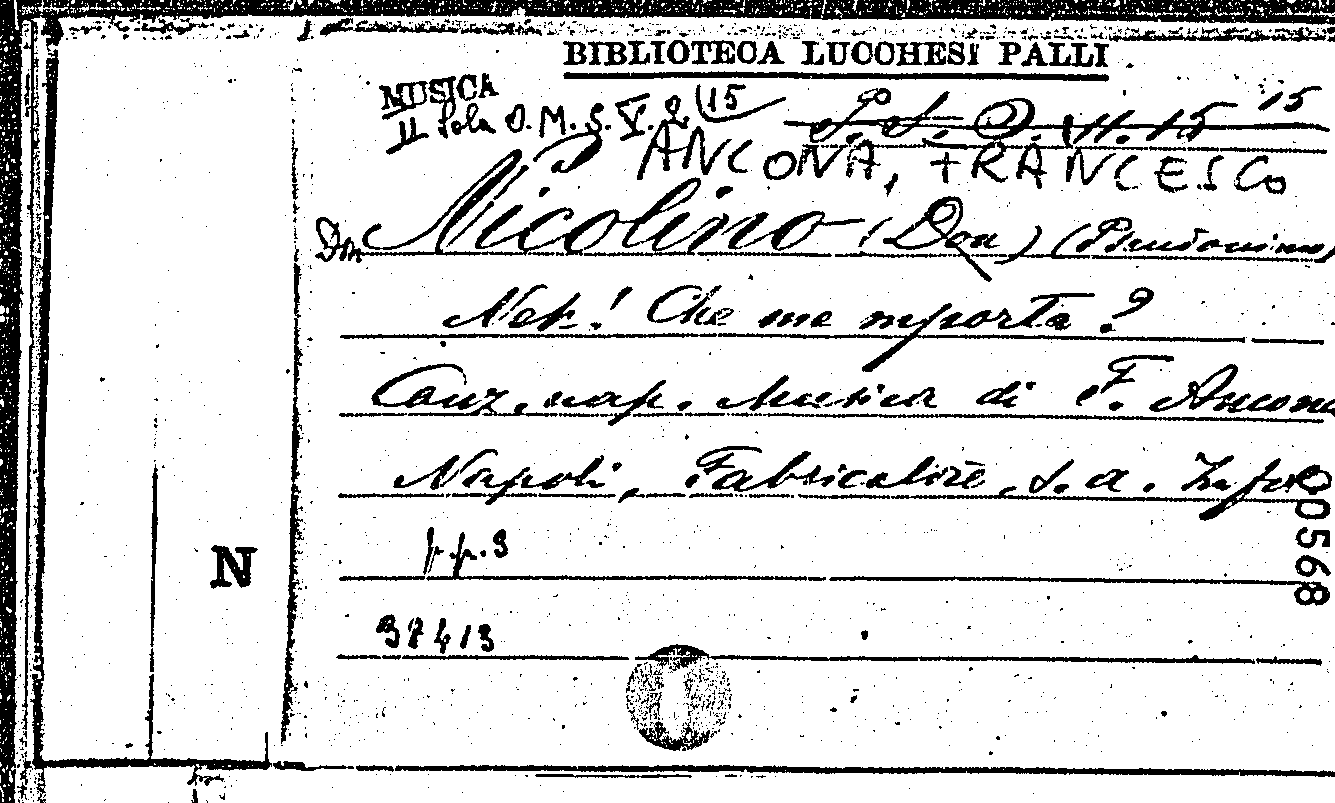 BIBLIOTECA LUCCHESI PALLI
MUSICA
II Sala O. M. S. V. 2 (15
15
ANCONA, FRANCESCO
Don Nicolino (Don) (Pseudonimo)
Neh! Che me mporta?
Canz. nap. Musica di F. Ancona
Napoli, Fabricatore, s. a. In fol
00568
pp. 3
N